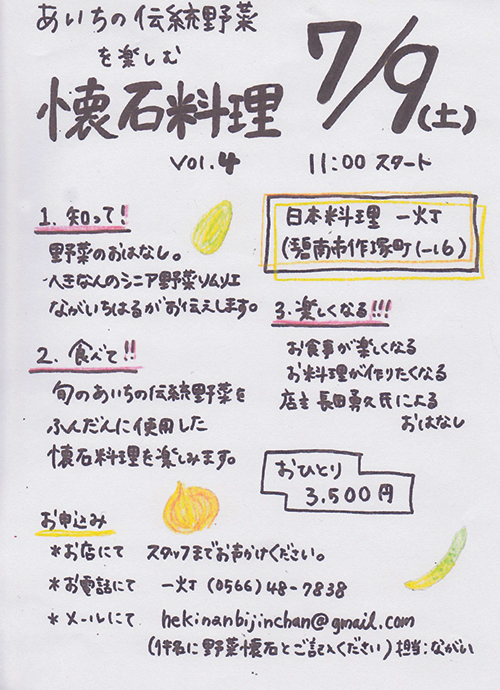 あいちの伝統野菜
を楽しむ
懐石料理
vol.4
7/9(土)
11:00 スタート
日本料理 一灯
(碧南市作塚町1-16)
1. 知って!
野菜のおはなし。
へきなんのシニア野菜ソムリエ
ながいちはるがお伝えします。
2. 食べて!!
旬のあいちの伝統野菜を
ふんだんに使用した
懐石料理を楽しみます。
3. 楽しくなる!!!
お食事が楽しくなる
お料理が作りたくなる
店主 長田勇久氏による
おはなし
おひとり
3,500円
お申込み
*お店にて スタッフまでお声がけください。
*お電話にて 一灯 (0566)48-7838
*メールにて hekinanbijinchan@gmail.com
(件名に野菜懐石とご記入ください) 担当:ながい